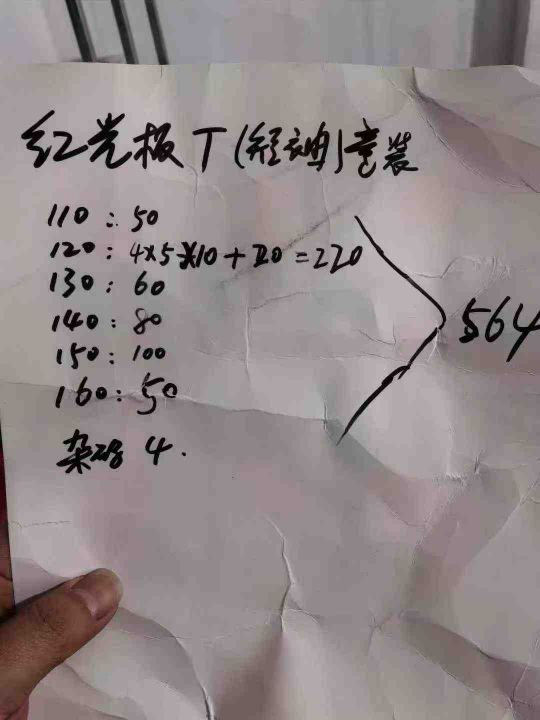 红光板T(短袖)童装
110:50
120:4×5×10+20=220
130:60
140:80
150:100
160:50
杂码4.
564